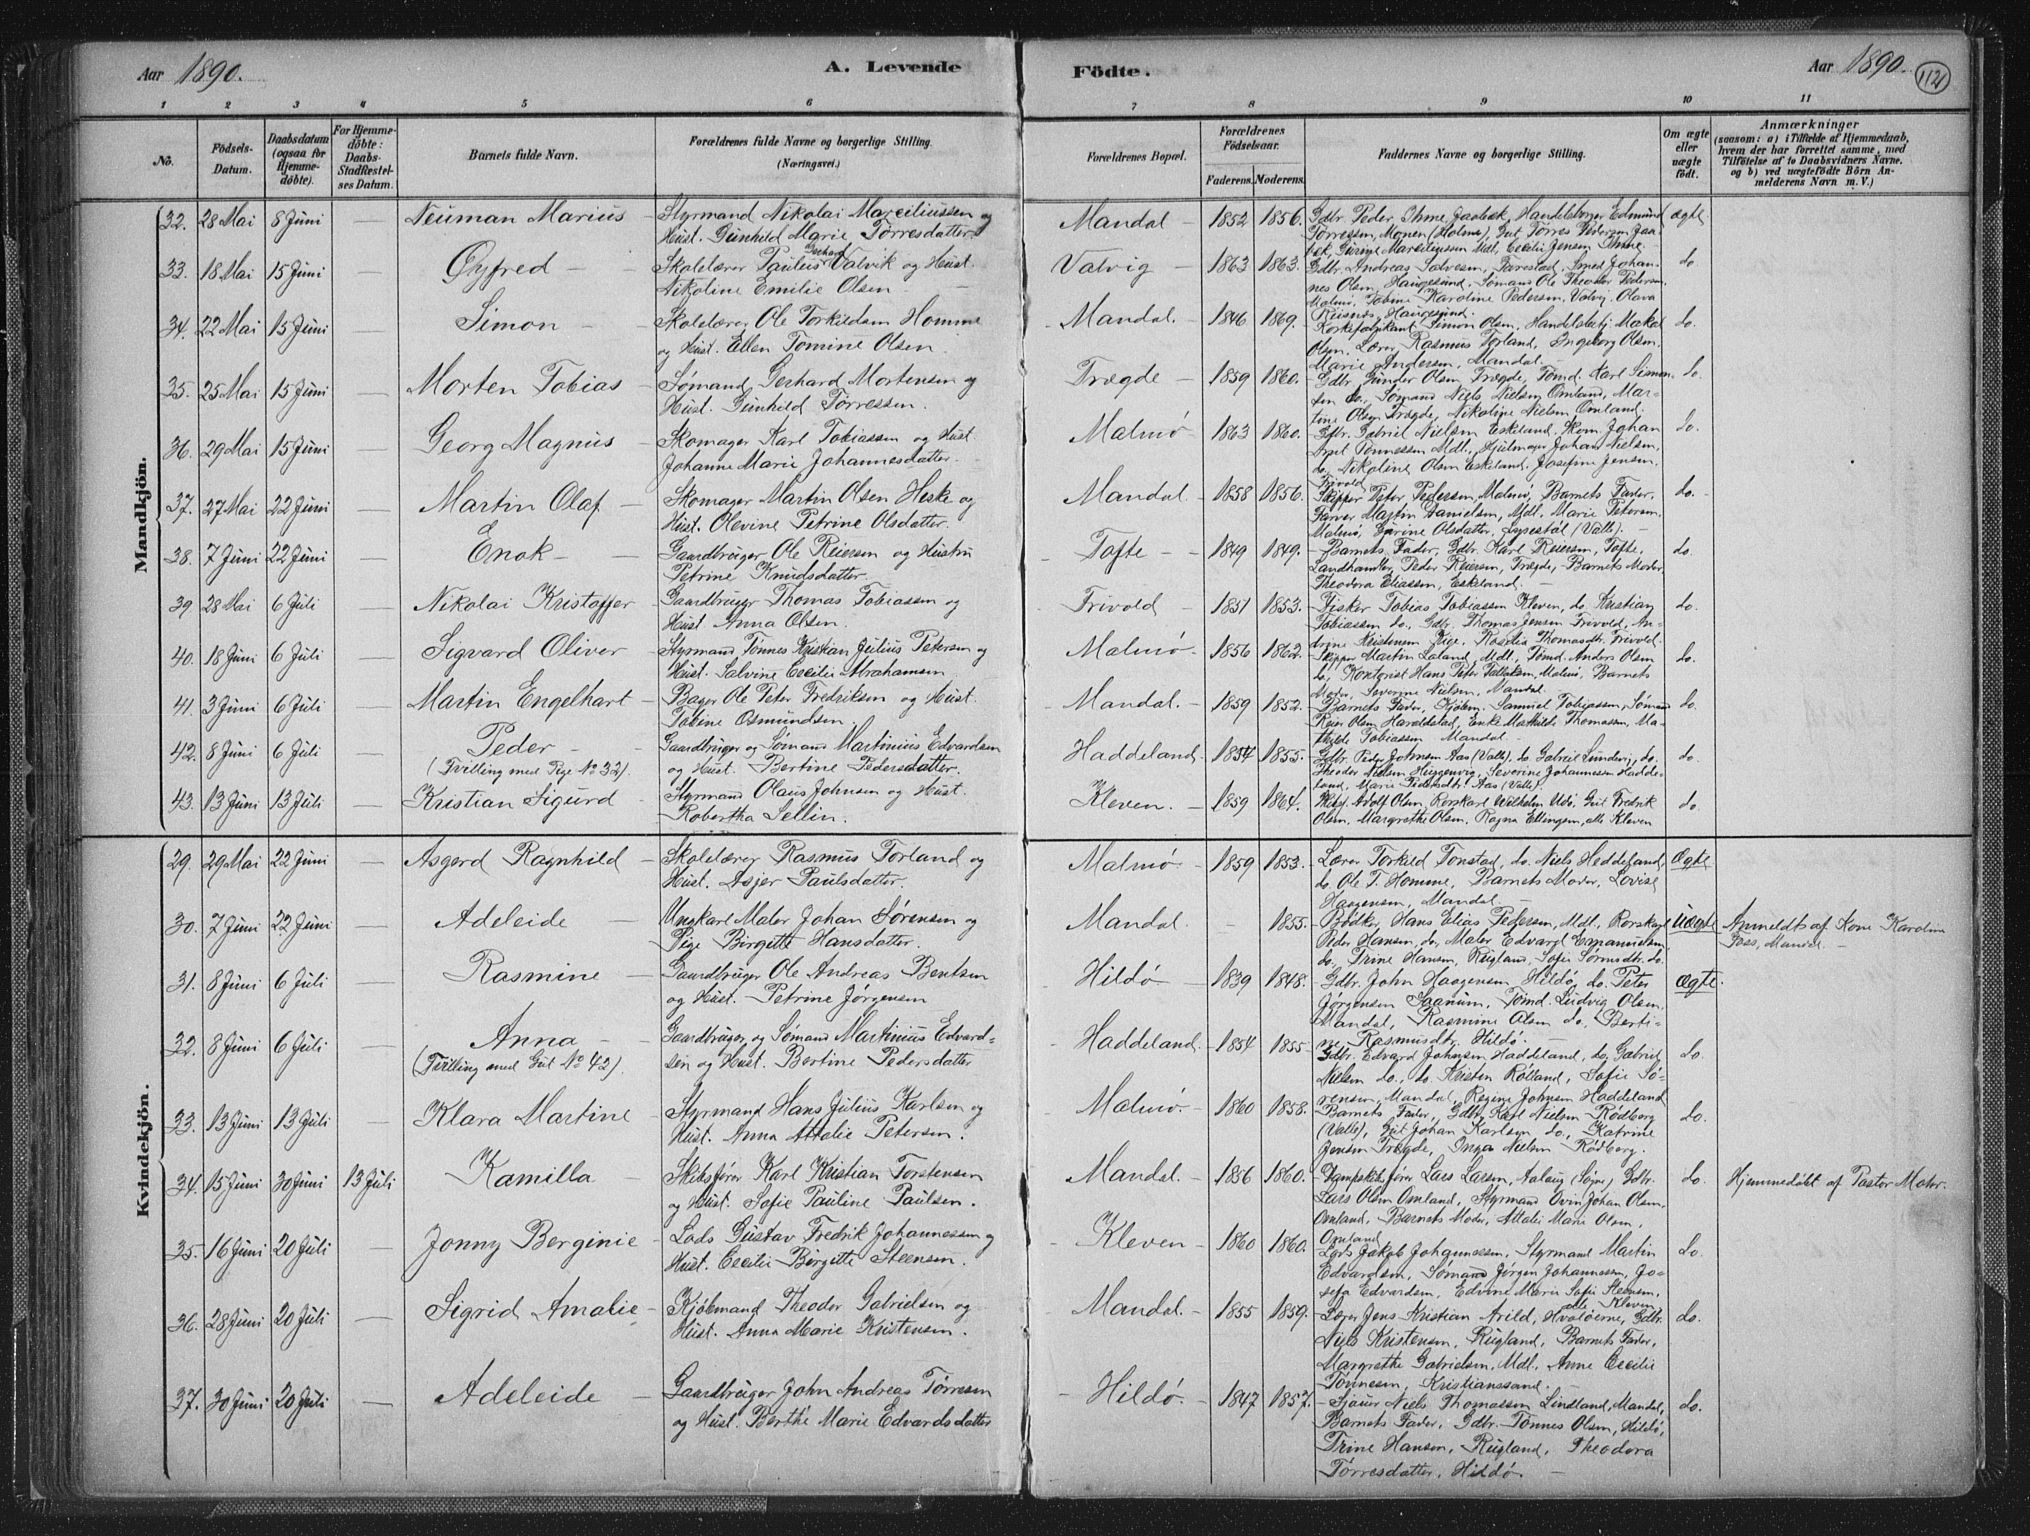 Aar 1890. A. Levende
1 2 3 4 5 6
No. Födsels-Datum. Daabsdatum (ogsaa for Hjemmedöbte). For Hjemmedöbte: Daabs-Stadfæstelses Datum. Barnets fulde Navn. Forældrenes fulde Navne og borgerlige Stilling. (Næringsvei.)
Mandkjön.
32. 28 Mai 8 Juni Neuman Marius Styrmand Nikolai Marciliussen og
Hust. Gunhild Marie Tørresdatter
33. 18 Mai 15 Juni — Øyfred — Skolelærer Paulius Valvik og Hust.
Nikoline Emilie Olsen —
34. 22 Mai 15 Juni — Simon — Skolelærer Ole Torkildsen Homme
og Hust. Ellen Tomine Olsen
35. 25 Mai 15 Juni — Morten Tobias — Sømand Gerhard Mortensen og
Hust. Gunhild Tørressen.
36. 29 Mai 15 Juni — Georg Magnus — Skomager Karl Tobiassen og Hust.
Johanne Marie Johannesdatter.
37. 27 Mai 22 Juni — Martin Olaf — Skomager Martin Olsen Heske og
Hust. Olevine Petrine Olsdatter.
38. 7 Juni 22 Juni — Enok — Gaardbruger Ole Reiersen og Hustru
Petrine Knudsdatter.
39. 28 Mai 6 Juli — Nikolai Kristoffer — Gaardbruger Thomas Tobiassen og
Hust. Anna Olsen.
40. 18 Juni 6 Juli — Sigvard Oliver — Styrmand Tønnes Kristian Julius Petersen og
Hust. Salvine Cecilie Abrahamsen
41. 3 Juni 6 Juli — Martin Engelhart — Bager Ole Peter Fredriksen og Hust.
Tobine Osmundsen.
42. 8 Juni 6 Juli — Peder — Gaardbruger og Sømand Martinius Edvardsen
(Tvilling med Pige No 32). og Hust. Bertine Pedersdatter.
43. 13 Juni 13 Juli — Kristian Sigurd — Styrmand Olaus Johnsen og Hust.
Robertha Sellin.
Kvindekjön.
29. 29 Mai 22 Juni — Asgerd Ragnhild — Skolelærer Rasmus Torland og
Hust. Asjer Paulsdatter.
30. 7 Juni 22 Juni — Adeleide — Ungkarl Maler Johan Sørensen og
Pige Birgitte Hansdatter.
31. 8 Juni 6 Juli — Rasmine — Gaardbruger Ole Andreas Bentsen
og Hust. Petrine Jørgensen
32. 8 Juni 6 Juli — Anna — Gaardbruger og Sømand Martinius Edvard-
(Tvilling med Gut No 42). sen og Hust. Bertine Pedersdatter
33. 13 Juni 13 Juli — Klara Martine Styrmand Hans Julius Karlsen og
Hust. Anna Attalie Petersen.
34. 15 Juni 30 Juni 13 Juli Kamilla Skibsfører Karl Kristian Torstensen
og Hust. Sofie Pauline Paulsen.
35. 16 Juni 20 Juli — Jonny Berginie — Lods Gustav Fredrik Johannessen og
Hust. Cecilie Birgitte Steensen.
36. 28 Juni 20 Juli — Sigrid Amalie — Kjøbmand Theodor Gabrielsen og
Hust. Anna Marie Kristensen.
37. 30 Juni 20 Juli — Adeleide Gaardbruger John Andreas Tørresen
og Hust. Berthe Marie Edvardsdatter
Födte. Aar 1890. 112
7 8 9 10 11
Forældrenes Bopæl. Forældrenes Födselsaar. Faderens. Moderens. Faddernes Navne og borgerlige Stilling. Om ægte eller uægte födt. Anmærkninger (saasom: a) i Tilfælde af Hjemmedaab, hvem der har forrettet samme, med Tilföielse af to Daabsvidners Navne. og b) ved uægtefödte Börn Anmelderens Navn m. V.)
Mandal — 1852 1856. Gdbr. Peder Ihme, Handelsborger Edmund ægte
Tørressen, Monen (Holme), Gut Tørres Pedersen
Gurine Marciliussen Mdl. Cecilie Jensen Ihme.
Valvig — 1863 1863. Gdbr. Andreas Salvesen, Tarestad, Smed Johan- do.
nes Olsen, Haugesund, Sømand Ole Theodor Pedersen
Malmø, Tobine Karoline Pedersen, Valvig, Olava
Reisnes, Haugesund.
Mandal. — 1846 1869. Simon Olsen, do.
Olsen, Lærer Rasmus Torland, Ingeborg Olsen,
Marie Andersen, Mandal. —
Trægde — 1859 1860. Gdbr. Gunder Olsen, Trægde, Tømd. Karl Simon- do.
sen do., Sømand Niels Nielsen Omland, Mar-
tine Olsen Trægde, Nikoline Nielsen Omland.
Malmø — 1863 1860. Gdbr. Gabriel Nielsen Eskeland, Skom. Johan do.
Tønnessen Mdl., Hjulmager Johan Nielsen,
do, Nikoline Olsen Eskeland, Josefine Jensen,
Trivold
Mandal. — 1858 1856. Skipper Peter Pedersen, Malmø, Barnets Fader, do.
Farver Martin Danielsen, Mdl. Marie Petersen
Malmø, Gurine Olsdatter, (Valle). —
Tofte — 1849 1849. Barnets Fader, Gdbr. Karl Reiersen, Tofte, do.
Landhandler Peder Reiersen, Trægde, Barnets Moder,
Theodora Eliassen, Eskeland. —
Trivold — 1851 1853. Fisker Tobias Tobiassen Kleven, do. Kristian do.
Tobiassen do., Gdbr. Thomas Jensen Trivold, An-
drine Kristensen Kige, Thomasdtr. Trivold.
Malmø. — 1856 1862. Skipper Martin Laland, Mdl., Tømd. Anders Olsen do.
do, Kontorist Hans Peter Malmø, Barnets
Moder, Severine Nielsen, Mandal.
Mandal. — 1859 1852. Barnets Fader, Kjøbm. Samuel Tobiassen, Sømand do.
Reier Olsen Haraldstad, Enke Mathilde Thomassen, Ma-
thilde Tobiassen Mandal. —
Haddeland. 1854 1855. Gdbr. Peder Johnsen Aas (Valle), do. Gabriel do. do.
Theodor Nielsen Severine Johannessen Hadde-
land, Marie Pedersdtr. Aas (Valle).
Kleven. — 1859 1864. Adolf Olsen, Rorskarl Wilhelm Udø, Gut Fredrik do
Olsen, Margrethe Olsen, Ragna Ellingsen, alle Kleven
Malmø — 1859 1853. Lærer Torkild Tonstad, do. Niels Heddeland, Ægte
do. Ole T. Homme, Barnets Moder, Lovise
Haagensen, Mandal. —
Mandal — 1855. Bødker Hans Elias Pedersen, Mdl., Rorskarl Uægte Anmeldt af Kone Karoline
Peder Hansen, do, Maler Edvard Emanuelsen Foss, Mandal. —
do, Trine Hansen, Rugland, Sofie do.
Hildø — 1839 1848. Gdbr. John Haagensen, Hildø, do. Peter ægte.
Jørgensen Saanum, Tømd. Ludvig Olsen,
Mandal, Rasmine Olsen do, Berti-
ne Rasmusdtr. Hildø.
Haddeland. 1854 1855 Gdbr. Edvard Johnsen Haddeland, do. Gabriel do.
Nielsen do., do. Kristen Rølland, Sofie Sø-
rensen, Mandal, Regine Johnsen Haddeland
Malmø. — 1860 1858. Barnets Fader, Gdbr. Karl Nielsen Rødberg do.
(Valle), Gut Johan Karlsen do, Katrine
Jensen Trægde, Inga Nielsen Rødberg.
Mandal. — 1856 1860. Dampskibsfører Lars Larsen, (Søgne) Gdbr. do. Hjemmedøbt af Pastor Mohr.
Lars Olsen Omland, Styrmand Johan Olsen,
Omland, Barnets Moder, Attalie Marie Olsen,
Omland
Kleven — 1860 1860. Lods Jakob Johannessen, Styrmand Martin do.
Edvardsen, Sømand Jørgen Johannessen, Jo-
sefa Edvardsen, Edvine Marie Sofie Steensen,
alle Kleven
Mandal. 1855 1859. Lærer Jens Kristian Arild, Gdbr. do.
Niels Kristensen, Rugland, Barnets Fader,
Margrethe Gabrielsen, Mdl. Anne Cecilie
Tønnesen, Kristianssand. —
Hildø. — 1847 1857. Sjauer Niels Thomassen Lindland, Mandal, do.
Barnets Fader, Gdbr. Tønnes Olsen, Hildø,
Trine Hansen, Rugland, Theodora
Tørresdatter, Hildø. —